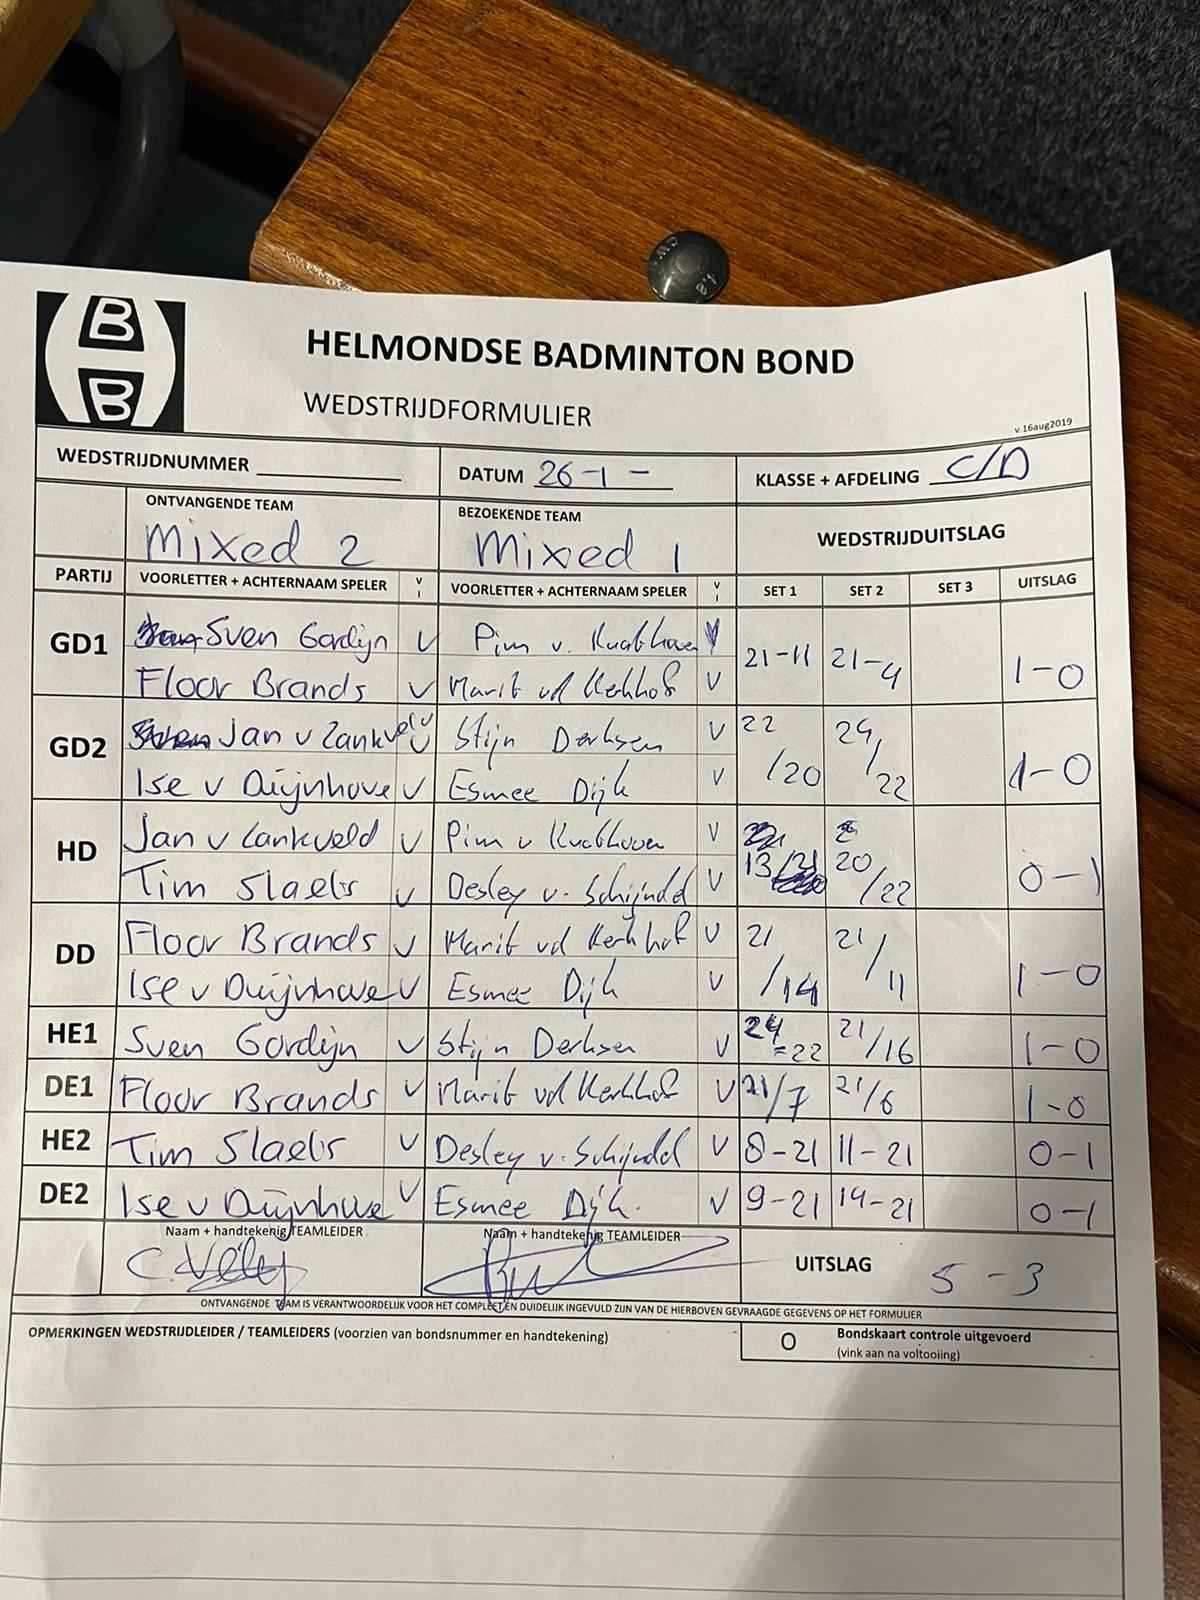 CW 4.8
B
B
HELMONDSE BADMINTON BOND
WEDSTRIJDFORMULIER
v.16aug2019
WEDSTRIJDNUMMER DATUM 26-1- KLASSE + AFDELING C/D
ONTVANGENDE TEAM BEZOEKENDE TEAM WEDSTRIJDUITSLAG
Mixed 2 Mixed 1
PARTIJ VOORLETTER + ACHTERNAAM SPELER V I VOORLETTER + ACHTERNAAM SPELER V I SET 1 SET 2 SET 3 UITSLAG
GD1 Sven Gordijn V Pim v. V 21-11 21-4 1-0
Floor Brands V Marit vd Kerkhof V
GD2 Jan v Lankveld V Stijn Derksen V 22/20 24/22 1-0
Ise v Duijnhove V Esmee Dijk V
HD Jan v Lankveld V Pim v V 13/21 20/22 0-1
Tim Slaets V Desley v. Schijndel V
DD Floor Brands V Marit vd Kerkhof V 21/14 21/11 1-0
Ise v Duijnhove V Esmee Dijk V
HE1 Sven Gordijn V Stijn Derksen V 24-22 21/16 1-0
DE1 Floor Brands V Marit vd Kerkhof V 21/7 21/6 1-0
HE2 Tim Slaets V Desley v. Schijndel V 8-21 11-21 0-1
DE2 Ise v Duijnhove V Esmee Dijk. V 9-21 14-21 0-1
Naam + handtekenig TEAMLEIDER Naam + handtekenig TEAMLEIDER UITSLAG 5-3
ONTVANGENDE TEAM IS VERANTWOORDELIJK VOOR HET COMPLEET EN DUIDELIJK INGEVULD ZIJN VAN DE HIERBOVEN GEVRAAGDE GEGEVENS OP HET FORMULIER
OPMERKINGEN WEDSTRIJDLEIDER / TEAMLEIDERS (voorzien van bondsnummer en handtekening) O Bondskaart controle uitgevoerd
(vink aan na voltooiing)